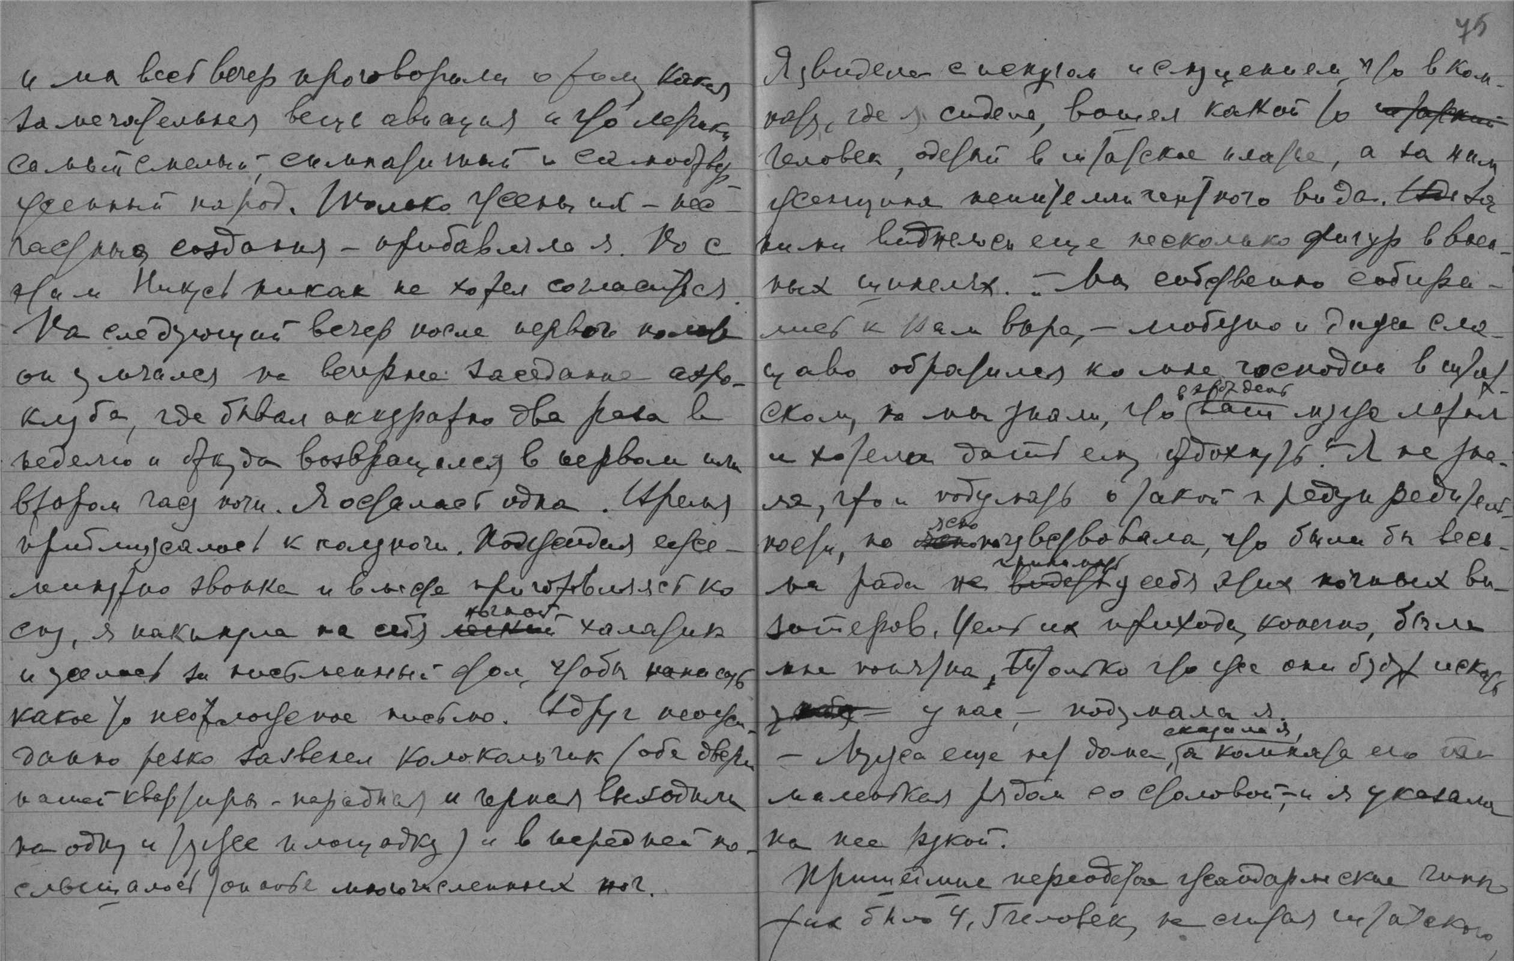 75
и мы весь вечер проговорили о том, какая
замечательная вещь авиация и что летчики
самый смелый, симпатичный и самоотвер
женный народ. Только жены их – нес-
частныя создания – прибавляла я. Но с
этим Никусь никак не хотел согласиться.
На следующий вечер после первой
он умчался на вечернее заседание аэро-
клуба, где бывал аккуратно два раза в
неделю и откуда возвращался в первом или
втором часу ночи. Я осталась одна. Время
приближалось к полуночи. Поджидая еже-
минутно звонка и в мыслях приготовляясь ко
сну, я накинула на себя легкий ночной халатик
и уселась за письменный стол, чтобы написать
какое то неотложное письмо. Вдруг неожи-
данно резко зазвенел колокольчик (обе двери
нашей квартиры – парадная и черная выходили
на одну и туже площадку) и в передней по-
слышалось топанье многочисленных ног.
Я увидела с испугом и смущением, что в ком-
нату, где я сидела, вошел какой то штатский
человек, одетый в штатское платье, а за ним
женщина неинтеллигентного вида. За
ними виднелось еще несколько фигур в воен-
ных шинелях. – Мы собственно собира-
лись к Вам вчера, – любезно и даже сла-
щаво обратился ко мне господин в штат-
ском, но мы знали, что в этот день ваш муж летал
и хотели дать ему отдохнуть. – Я не зна-
ла, что и подумать о такой предупредитель-
ности, но ясно почувствовала, что были бы весь-
ма рады не видеть принимать у себя этих ночных ви-
зитеров. Цель их прихода, конечно, была
мне понятна, Только что же они будут искать
у нас, – подумала я.
– Мужа еще нет дома, сказала я, а комната его
маленькая рядом со столовой, – и я указала
на нее рукой.
Пришедшие переодетые жандармские чины
их было 4, 5 человек, не считая штатского,